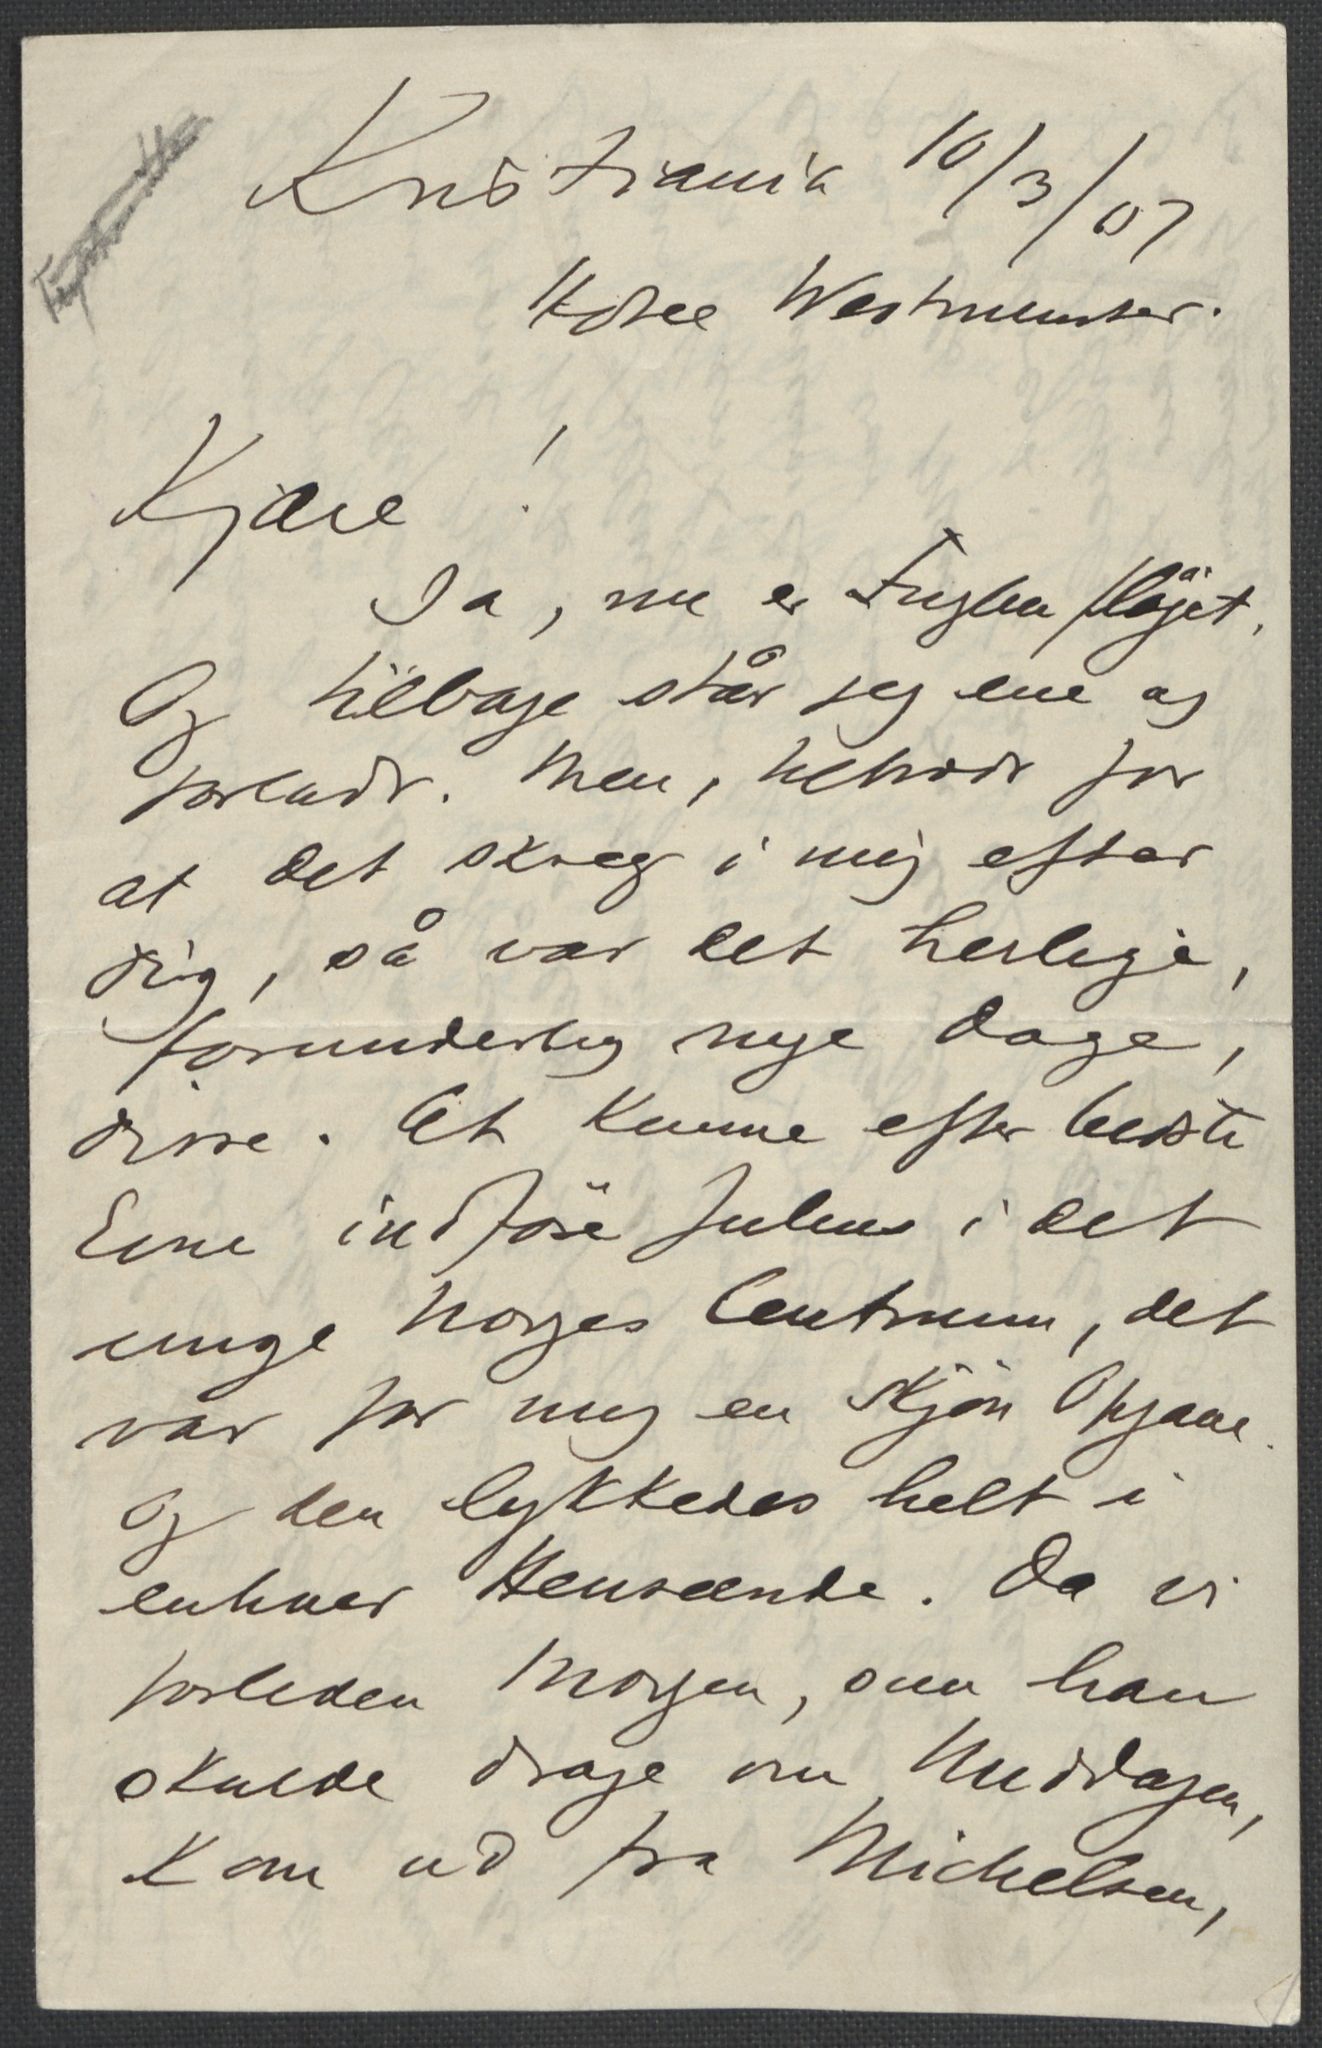 Kristiania 10/3/07
Hotel Westminster.
Kjære!
Ja, nu er Fuglen fløjet.
Og tilbage står jeg ene og
forladt. Men, tiltrods for
at det skreg i mig efter
dig, så var det herlige,
forunderlig nye Dage,
disse. At kunne efter bedste
Evne indføre Julius i det
unge Norges Centrum, det
var for mig en skjøn Opgave.
Og den lykkedes helt i
enhver Henseende. Da vi
forleden Morgen, som han
skulde drage om Middagen,
kom ud fra Michelsen,